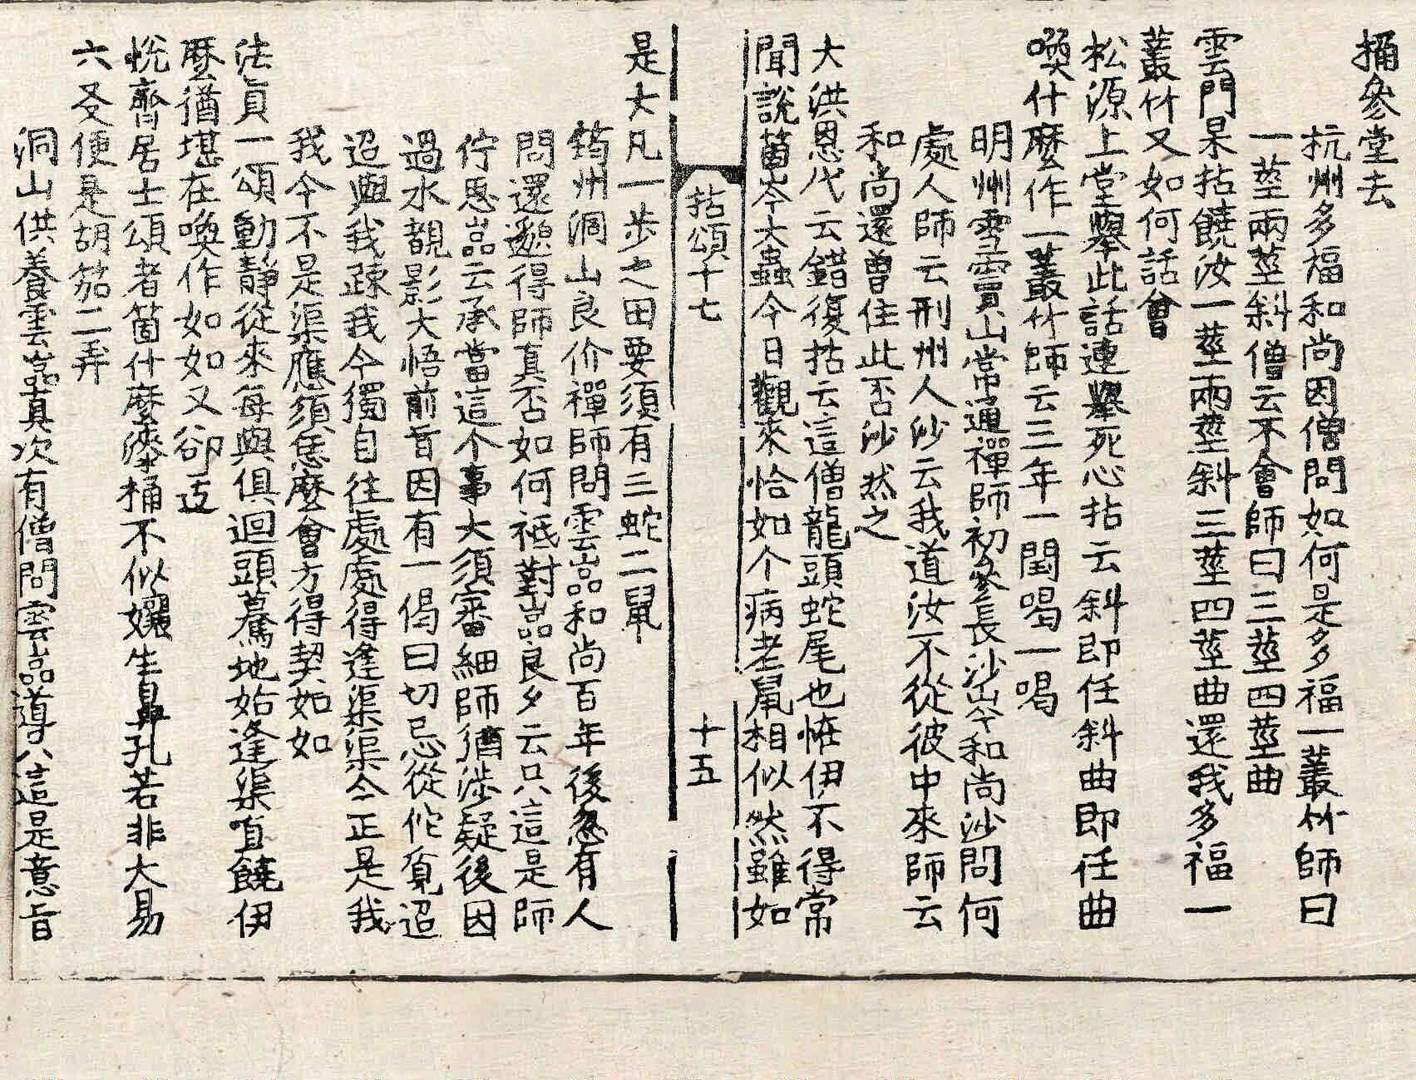 桶參堂去
杭州多福和尚因僧問如何是多福一叢竹師曰
一莖兩莖斜僧云不會師曰三莖四莖曲
雲門杲拈饒汝一莖兩莖斜三莖四莖曲還我多福一
叢竹又如何話會
松源上堂舉此話連舉死心拈云斜即任斜曲即任曲
喚什麼作一叢竹師云三年一閏喝一喝
明州雪竇山常通禪師初參長沙岑和尚沙問何
處人師云刑州人沙云我道汝不從彼中來師云
和尚還曾住此否沙然之
大洪恩代云錯復拈云這僧龍頭蛇尾也恠伊不得常
聞說箇岑大蟲今日觀來恰如个病老鼠相似然雖如
拈頌十七
十五
是大凡一步之田要須有三蛇二鼠
筠州洞山良价禪師問雲嵓和尚百年後忽有人
問還邈得師真否如何祗對嵓良久云只這是師
佇思嵓云承當這个事大須審細師猶涉疑後因
過水覩影大悟前旨因有一偈曰切忌從佗覔迢
迢與我疎我今獨自往處處得逢渠渠今正是我
我今不是渠應須恁麼會方得契如如
法真一頌動靜從來每與俱迴頭驀地始逢渠直饒伊
麼猶堪在喚作如如又却迂
悅齊居士頌者箇什麼漆桶不似孃生鼻孔若非大易
六爻便是胡笳二弄
洞山供養雲嵓真次有僧問雲嵓導只這是意旨